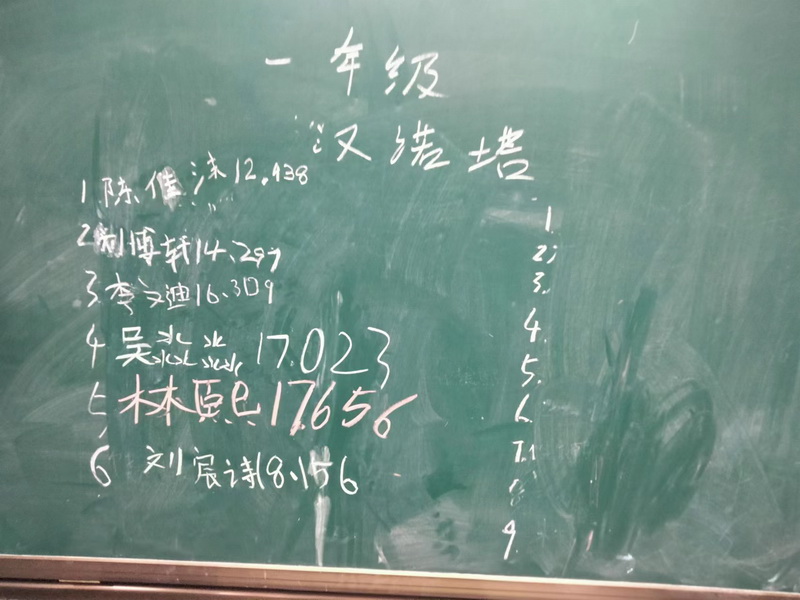 一年级
汉诺塔
1 陈佳沫 12.938
2 刘博轩 14.297
3 李文迪 16.309
4 吴淼淼 17.023
5 林熙 17.656
6 刘宸诗 18.156
1.
2.
3.
4.
5.
6.
7.
8
9